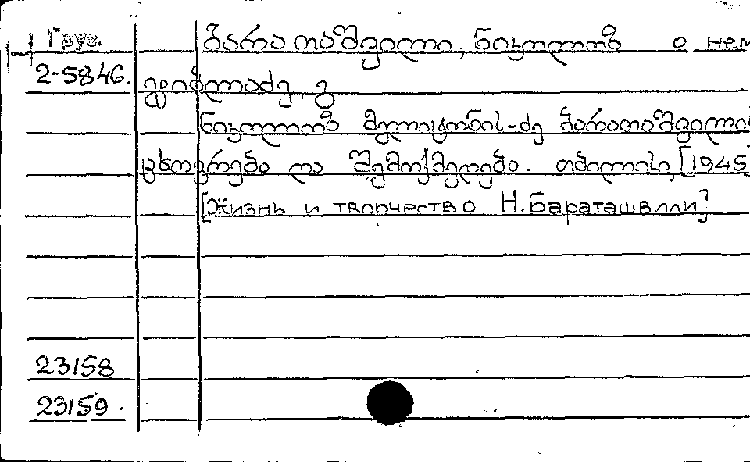 Груз. ბარათაშვილი, ნიკოლოზ о нем
2-5846.
ნიკოლოზ მელიტონის-ძე ბარათაშვილი
ცხოვრება და შემოქმედება. თბილისი, [1945]
[Жизнь и творчество Н. Бараташвили]
23158
23159.